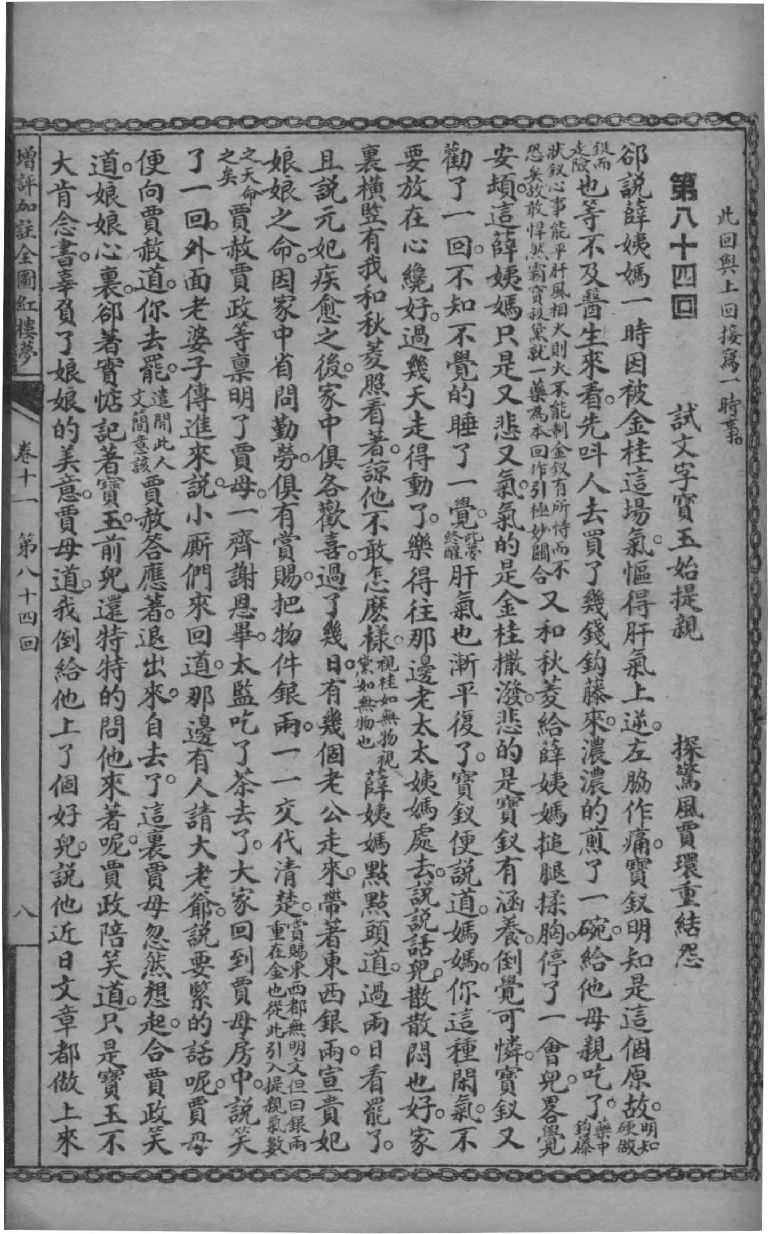 此回與上回接寫一時事
第八十四回　試文字寶玉始提親　探驚風賈環重結怨
卻說薛姨媽一時因被金桂這場氣慪得肝氣上逆。左脇作痛。寶釵明知是這個原故。明知硬做藥中鈎藤
鋌而走險也等不及醫生來看。先叫人去買了幾錢鈎藤來。濃濃的煎了一碗。給他母親吃了。
狀釵心事能平肝風相火則火不能制金釵有所恃而不恐矣故敢悍然霸寶殺黛就一藥為本回作引極妙關合又和秋菱給薛姨媽搥腿揉胸。停了一會兒。畧覺
安頓這薛姨媽只是又悲又氣。氣的是金桂撒潑。悲的是寶釵有涵養。倒覺可憐。寶釵又
勸了一回。不知不覺的睡了一覺。此夢終醒肝氣也漸平復了。寶釵便說道。媽媽。你這種閑氣。不
要放在心纔好。過幾天走得動了。樂得往那邊老太太姨媽處去。說說話兒。散散悶也好。家
裏橫豎有我和秋菱照看著。諒他不敢怎麽樣。視桂如無物視黛如無物也薛姨媽點點頭道。過兩日看罷了。
且說元妃疾愈之後。家中俱各歡喜。過了幾日。有幾個老公走來。帶著東西銀兩。宣貴妃
娘娘之命。因家中省問勤勞。俱有賞賜。把物件銀兩一一交代清楚。賞賜東西都無明文但曰銀兩重在金也從此引入提親氣數
之天命之矣賈赦賈政等稟明了賈母。一齊謝恩畢。太監吃了茶去了。大家回到賈母房中。說笑
了一回。外面老婆子傳進來。說小厮們來回道。那邊有人請大老爺。說要緊的話呢。賈母
便向賈赦道。你去罷。遣開此人文簡意該賈赦答應著。退出來。自去了。這裏賈母忽然想起。合賈政笑
道。娘娘心裏。卻著實惦記著寶玉。前兒還特特的問他來著呢。賈政陪笑道。只是寶玉不
大肯念書。辜負了娘娘的美意。賈母道。我倒給他上了個好兒。說他近日文章都做上來
增評加註全圖紅樓夢　卷十一　第八十四回　八